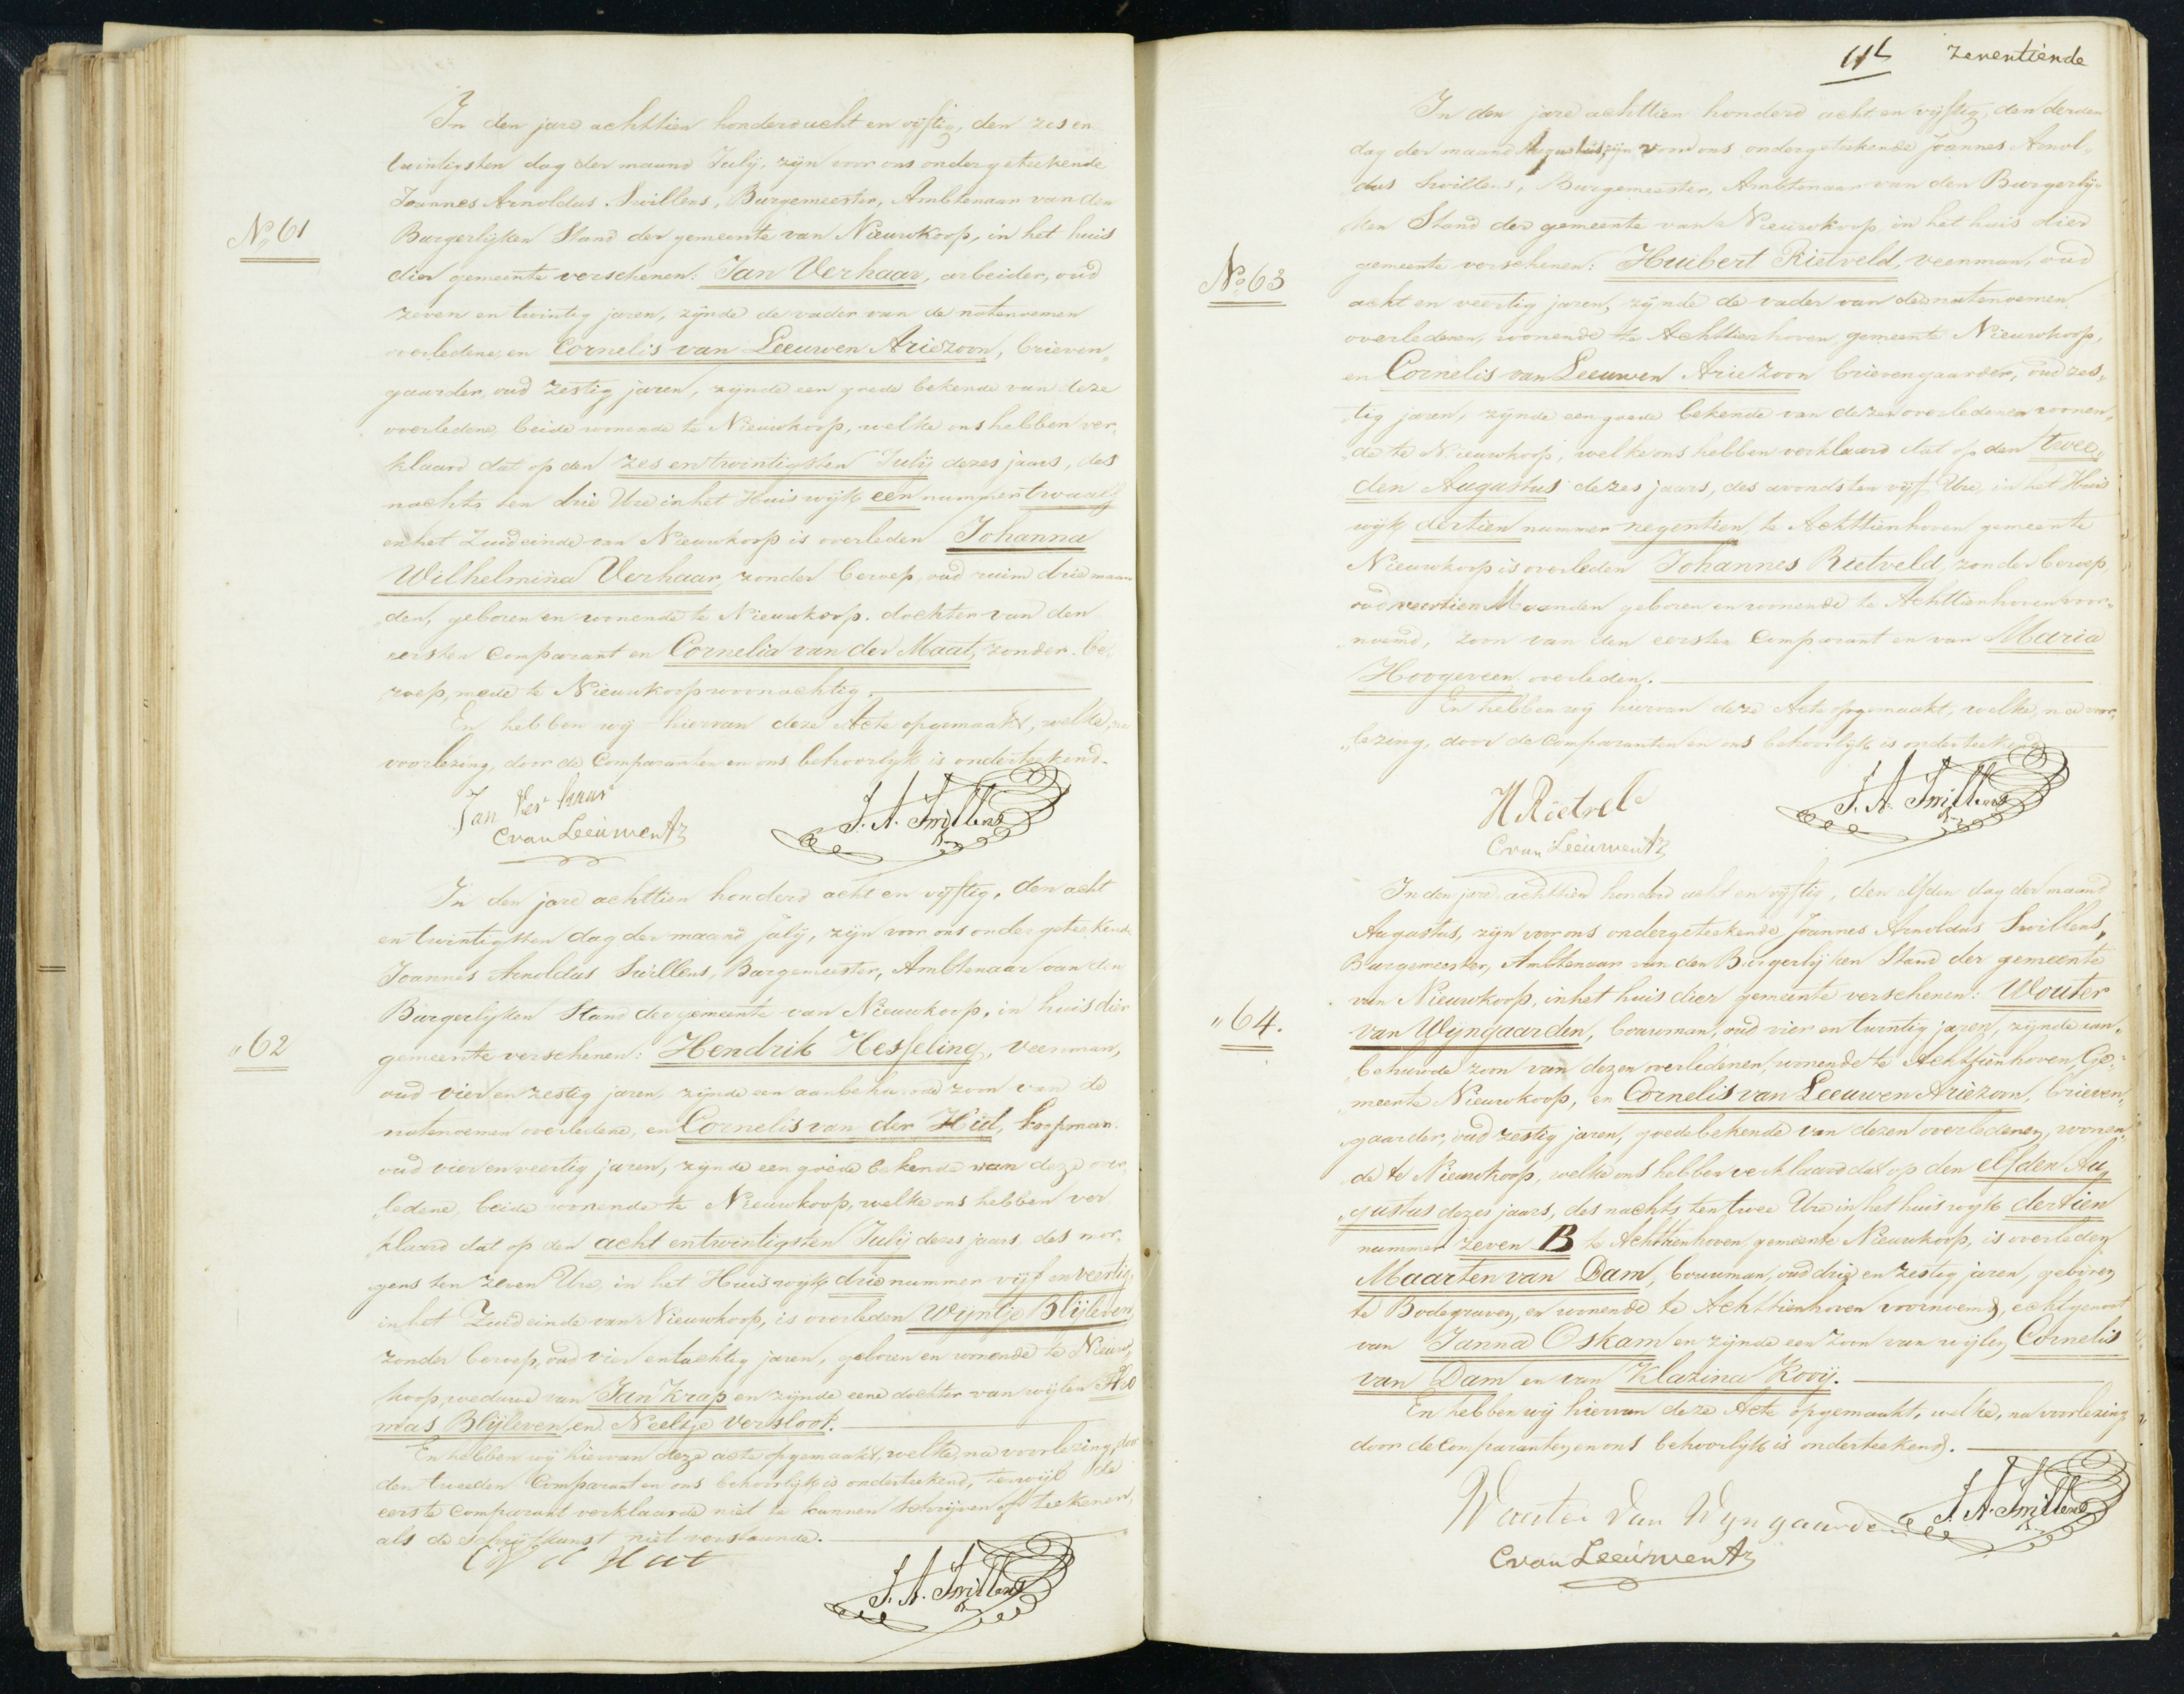 In den jare achttien honderd acht en vijftig, den zes en
twintigsten dag der maand Julij, zijn voor ons ondergeteekende
Joannes Arnoldus Swillens, Burgemeester, Ambtenaar van den
No 61
Burgerlijken Stand der gemeente van Nieuwkoop, in het huis
dier gemeente verschenen: Jan Verhaar, arbeider, oud
zeven en twintig jaren, zijnde de vader van de natenoemen
overledene, en Cornelis van Leeuwen Ariezoon, brieven„
gaarder, oud zestig jaren, zijnde een goede bekende van deze
overledene, beide wonende te Nieuwkoop, welke ons hebben ver„
klaard dat op den zes en twintigsten Julij dezes jaars, des
nachts ten drie Ure in het Huis wijk een nummer twaalf
en het Zuideinde van Nieuwkoop is overleden Johanna
Wilhelmina Verhaar, zonder beroep, oud ruim drie maan
„den, geboren en wonende te Nieuwkoop. dochter van den
eersten Comparant en Cornelia van der Maat, zonder be„
roep, mede te Nieuwkoop woonachtig.
En hebben wij hiervan deze Acte opgemaakt, welke, na
voorlezing, door de Comparanten en ons behoorlijk is onderteekend.
Jan Verhaar
C van Leeuwen Az
J. A. Swillens
In den jare achttien honderd acht en vijftig, den acht
en twintigsten dag der maand Julij, zijn voor ons ondergeteekende
Joannes Arnoldus Swillens, Burgemeester, Ambtenaar van den
Burgerlijken Stand der gemeente van Nieuwkoop, in huis dier
„ 62
gemeente verschenen: Hendrik Hesseling, veenman,
oud vier en zestig jaren, zijnde een aanbehuwde zoon van de
natenoemen overledene, en Cornelis van der Hut, koopman.
oud vier en veertig jaren, zijnde een goede bekende van deze over„
ledene, beide wonende te Nieuwkoop, welke ons hebben ver
klaard dat op den acht en twintigsten Julij dezes jaars des mor„
gens ten zeven Ure, in het Huis wijk drie nummer vijf en veertig
in het Zuideinde van Nieuwkoop, is overleden Wijntje Blijleven
zonder beroep, oud vier en tachtig jaren, geboren en wonende te Nieuw„
koop, weduwe van Jan Krap en zijnde eene dochter van wijlen Tho
mas Blijleven, en Neeltje Versloot.
En hebben wij hiervan deze acte opgemaakt, welke, na voorlezing, door
den tweeden Comparant en ons behoorlijk is onderteekend, terwijl de
eerste Comparant verklaarde niet te kunnen schrijven of teekenen,
als de schrijfkunst niet verstaande.
C v d Hut
J. A. Swillens
zeventiende
In den jare achttien honderd acht en vijftig, den derden
dag der maand Augustus, zijn voor ons ondergeteekende Joannes Arnol„
dus Swillens, Burgemeester, Ambtenaar van den Burgerlij„
ken Stand der gemeente van Nieuwkoop in het huis dier
No 63
gemeente verschenen: Huibert Rietveld, veenman, oud
acht en veertig jaren, zijnde de vader van den natenoemen
overledenen, wonende te Achttienhoven gemeente Nieuwkoop,
en Cornelis van Leeuwen Ariezoon brievengaarder, oud zes„
tig jaren, zijnde een goede bekende van dezen overledenen wonen„
„de te Nieuwkoop, welke ons hebben verklaard dat op den twee„
den Augustus dezes jaars, des avonds ten vijf Ure, in het Huis
wijk dertien nummer negentien te Achttienhoven gemeente
Nieuwkoop is overleden Johannes Rietveld, zonder beroep,
oud veertien Maanden geboren en wonende te Achttienhoven voor„
„noemd, zoon van den eersten Comparant en van Maria
Hoogeveen overleden.
En hebben wij hiervan deze Acte opgemaakt, welke, na voor„
„lezing, door de Comparanten en ons behoorlijk is onderteekend
H Rietvel
C van Leeuwen Az
J. A. Swillens
In den jare achttien honderd acht en vijftig, den elfden dag der maand
Augustus, zijn voor ons ondergeteekende Joannes Arnoldus Swillens,
Burgemeester, Ambtenaar van den Burgerlijken Stand der gemeente
van Nieuwkoop, in het huis dier gemeente verschenen: Wouter
„ 64.
van Wijngaarden, bouwman, oud vier en twintig jaren, zijnde aan„
behuwde zoon van dezen overledenen, wonende te Achttienhoven, Ge„
meente Nieuwkoop, en Cornelis van Leeuwen Ariezoon, brieven„
„gaarder, oud zestig jaren, goede bekende van dezen overledenen, wonen„
de te Nieuwkoop, welke ons hebben verklaard dat op den elfden Au„
„gustus dezes jaars, des nachts ten twee Ure in het huis wijk dertien
nummer zeven B te Achttienhoven gemeente Nieuwkoop, is overleden
Maarten van Dam, bouwman, oud drie en zestig jaren, geboren
te Bodegraven, en wonende te Achttienhoven voornoemd, echtgenoot
van Janna Oskam en zijnde een zoon van wijlen Cornelis
van Dam en van Klazina Kooij.
En hebben wij hiervan deze Acte opgemaakt, welke, na voorlezing
door de Comparanten, en ons behoorlijk is onderteekend.
Wouter van Wyngaarden
C van Leeuwen Az
J. A. Swillens